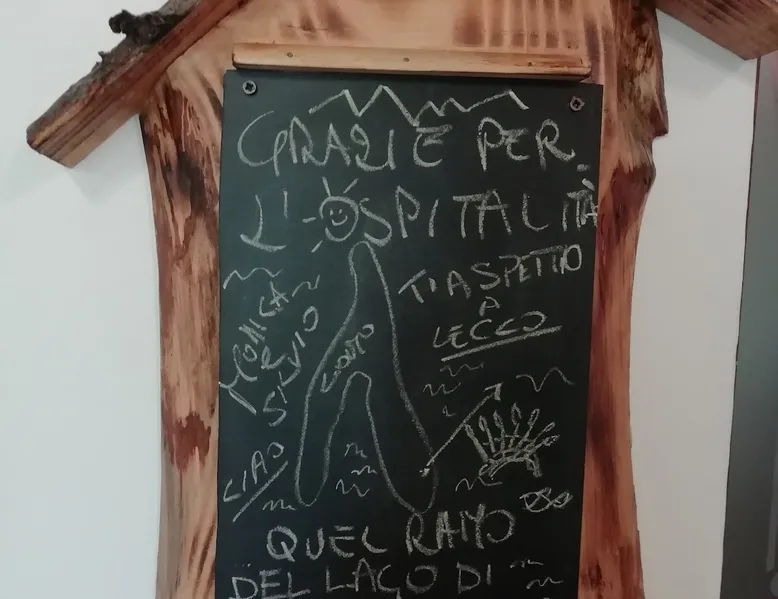 GRAZIE PER
L'OSPITALITÀ
TI ASPETTO
A
LECCO
MONICA
E
SILVIO
CIAO
QUEL RAMO
DEL LAGO DI